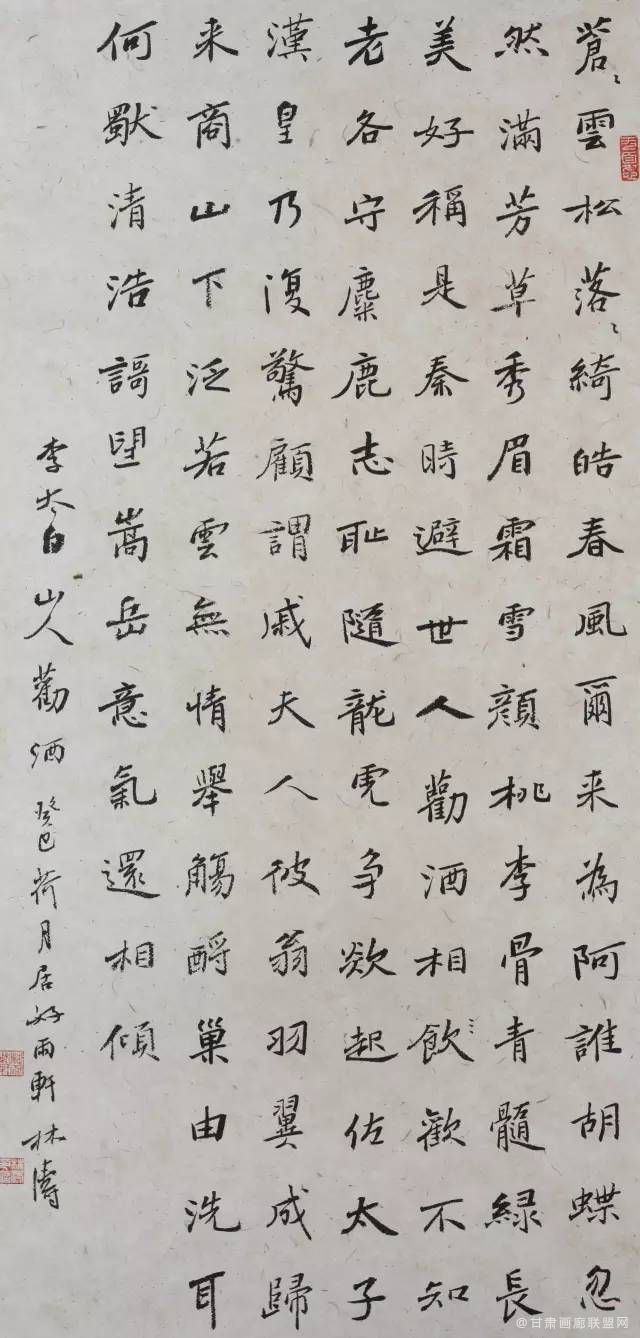 蒼〻雲松落〻綺皓春風爾来為阿誰胡蝶忽
然滿芳草秀眉霜雪顔桃李骨青髓緑長
美好稱是秦時避世人勸酒相飲歡不知
老各守麋鹿志恥隨龍虎争欻起佐太子
漢皇乃復驚顧謂戚夫人彼翁羽翼成歸
来商山下泛若雲無情舉觴酹巢由洗耳
何獨清浩謌望嵩岳意氣還相傾
李太白山人勸酒癸巳荷月居好雨軒林濤
@甘肃画廊联盟网